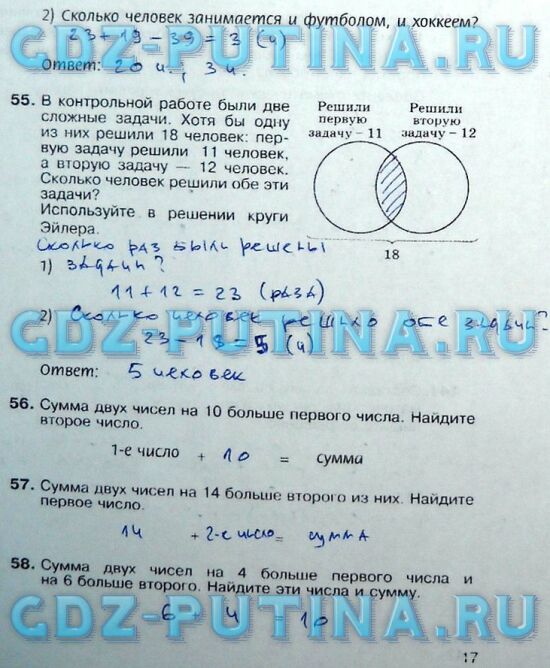 2) Сколько человек занимается и футболом, и хоккеем?
23 + 19 - 39 = 3 (ч)
GDZ-PUTINA.RU
Ответ: 20 ч., 3 ч.
55. В контрольной работе были две
сложные задачи. Хотя бы одну
из них решили 18 человек: пер-
вую задачу решили 11 человек,
а вторую задачу — 12 человек.
Сколько человек решили обе эти
задачи?
Используйте в решении круги
Эйлера.
Решили
первую
задачу – 11
Решили
вторую
задачу – 12
18
GDZ-PUTINA.RU
Сколько раз были решены
1) задачи?
11 + 12 = 23 (раза)
2) Сколько человек решило обе задачи?
GDZ-PUTINA.RU
23 - 18 = 5 (ч)
Ответ: 5 человек
56. Сумма двух чисел на 10 больше первого числа. Найдите
второе число.
1-е число + 10 = сумма
57. Сумма двух чисел на 14 больше второго из них. Найдите
первое число.
14 + 2-е число = сумма
58. Сумма двух чисел на 4 больше первого числа и
на 6 больше второго. Найдите эти числа и сумму.
GDZ-PUTINA.RU
6 + 4 = 10
17